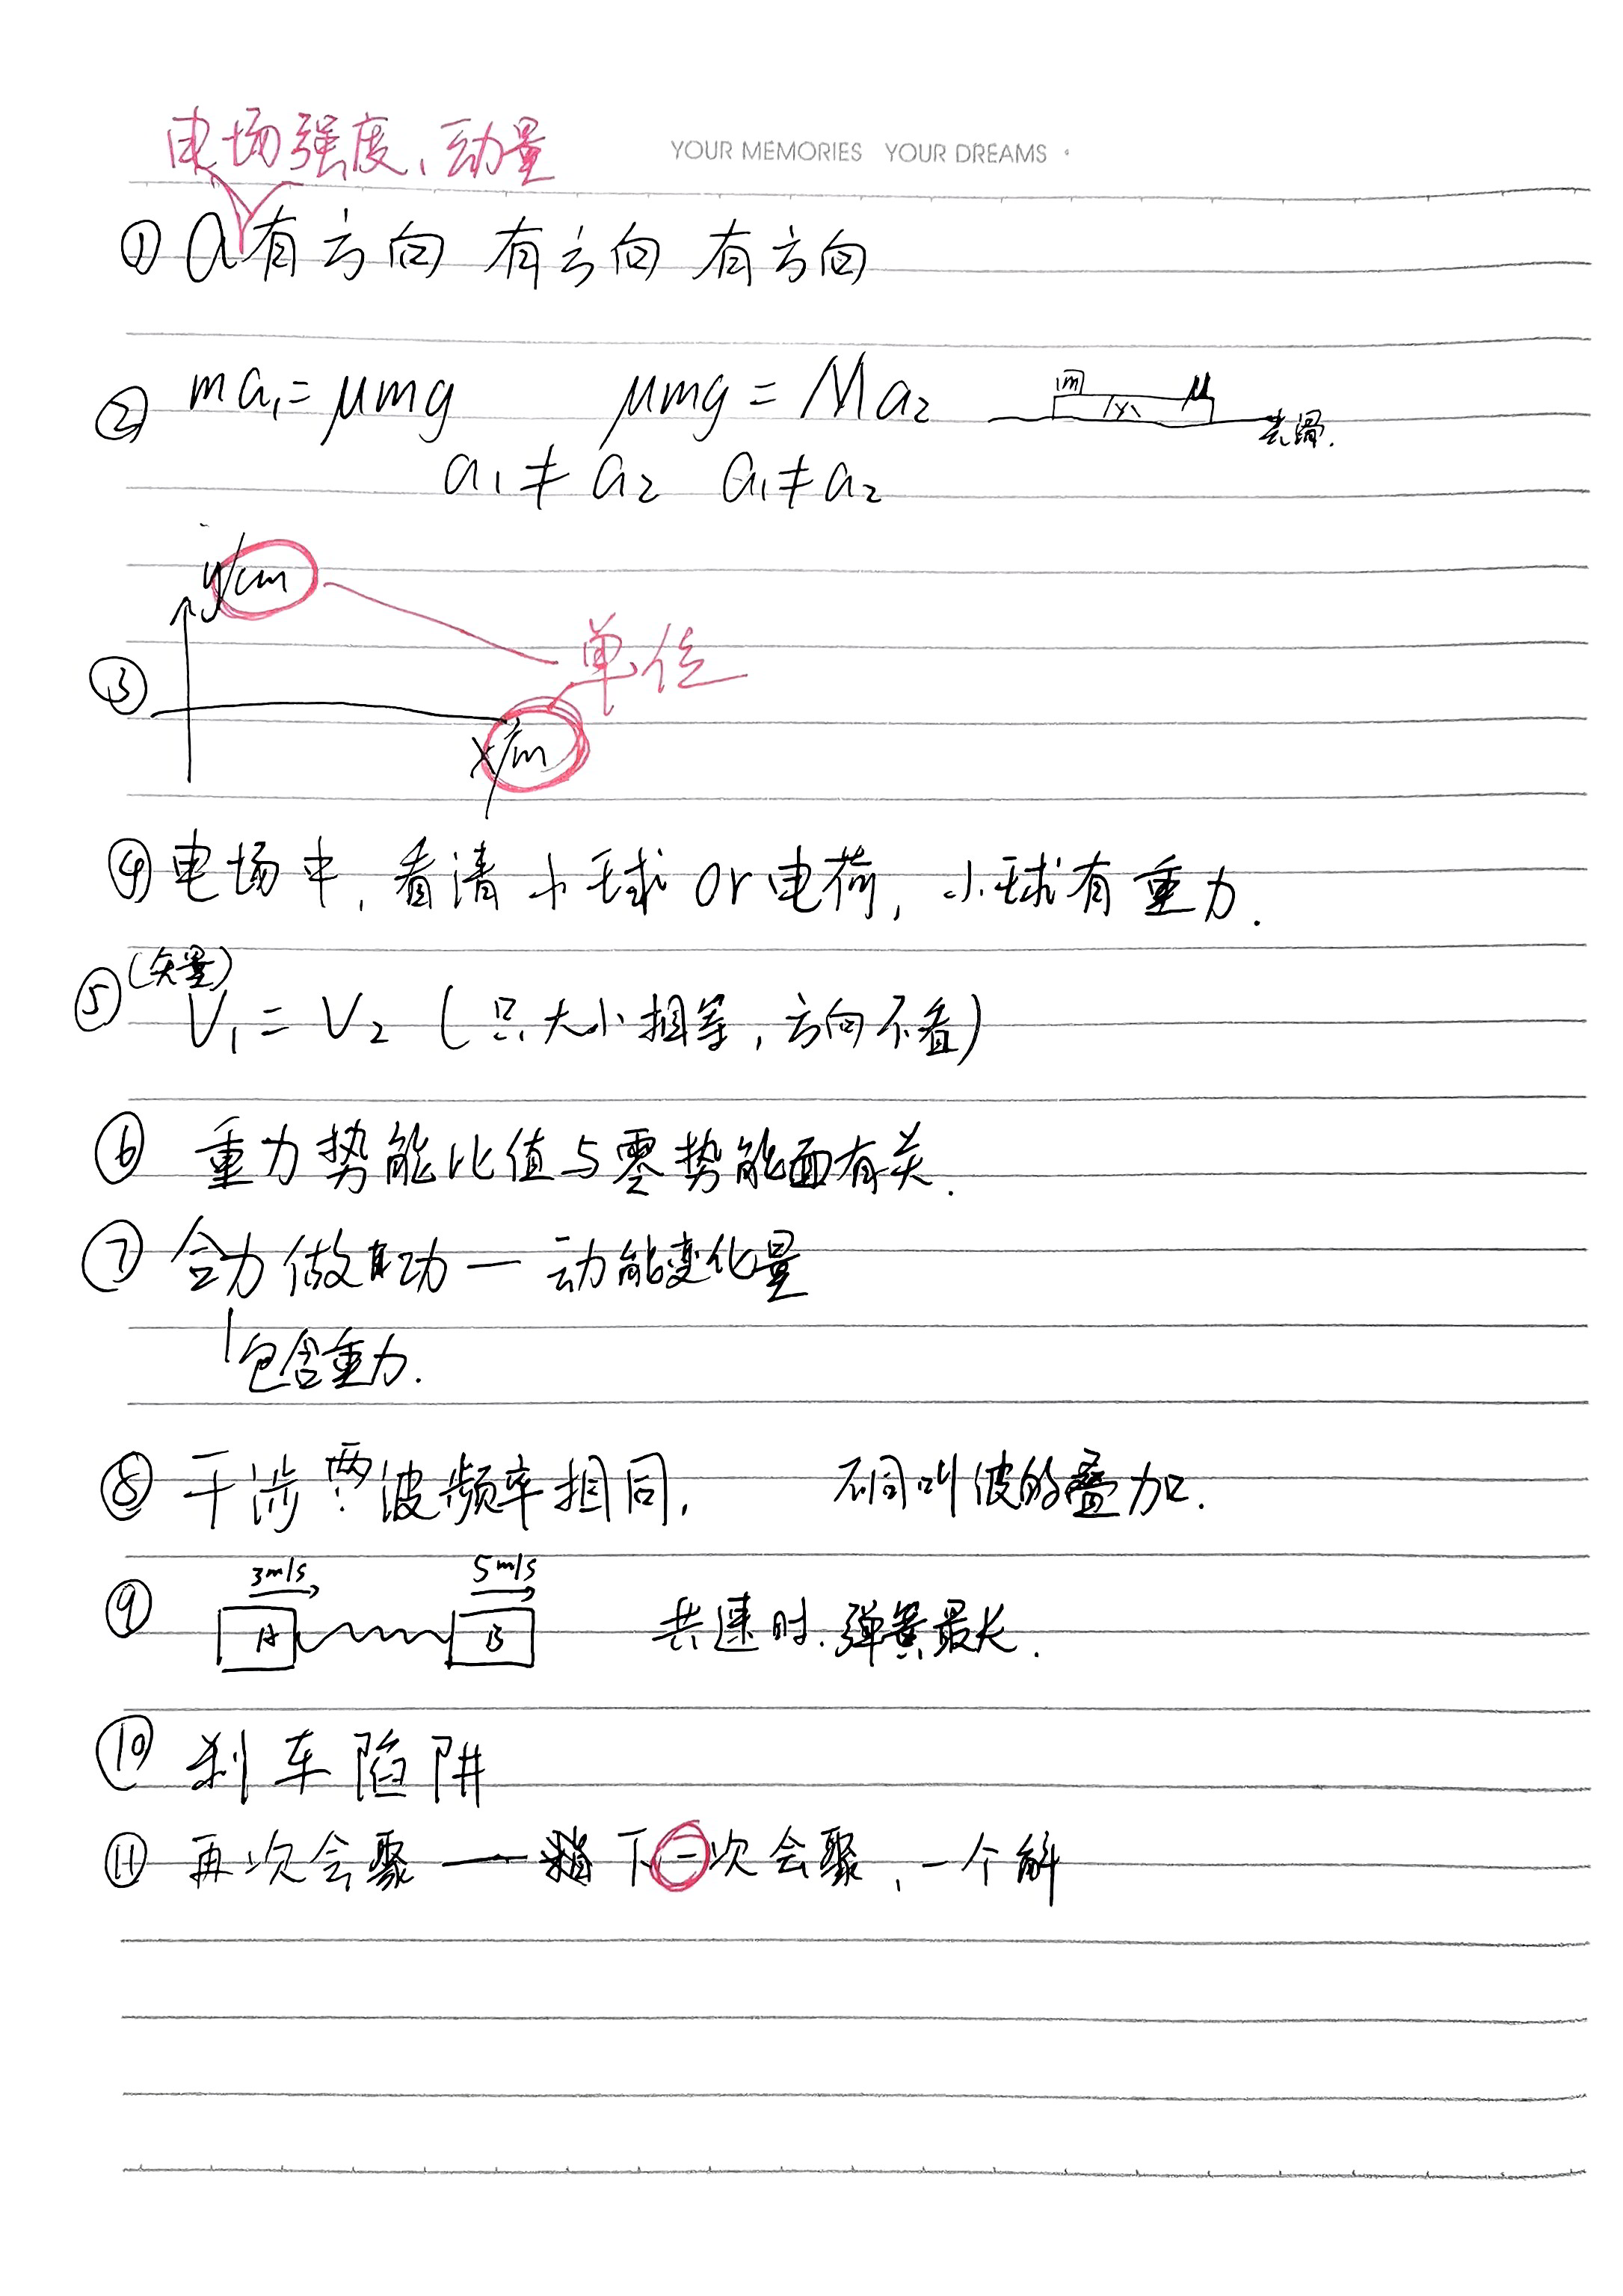 电场强度、动量
YOUR MEMORIES YOUR DREAMS
① a有方向 有方向 有方向
② ma₁=μmg μmg=Ma₂ m M μ 光滑.
a₁≠a₂ a₁≠a₂
y/cm
单位
③
x/m
④ 电场中,看清小球or电荷,小球有重力.
(矢量)
⑤ V₁=V₂(只大小相等,方向不看)
⑥ 重力势能比值与零势能面有关.
⑦ 合力做功—动能变化量
包含重力.
⑧ 干涉:两波频率相同, 不同叫波的叠加.
3m/s 5m/s
⑨ A B 共速时.弹簧最长.
⑩ 刹车陷阱
⑪ 再次会聚— 下一次会聚,一个解